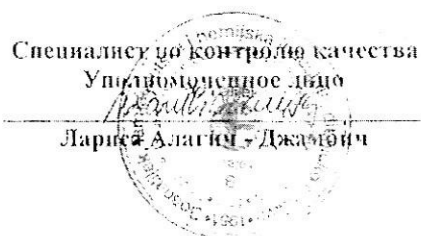 Специалист по контролю качества
Уполномоченное лицо
Лариса Алагич - Джамбич